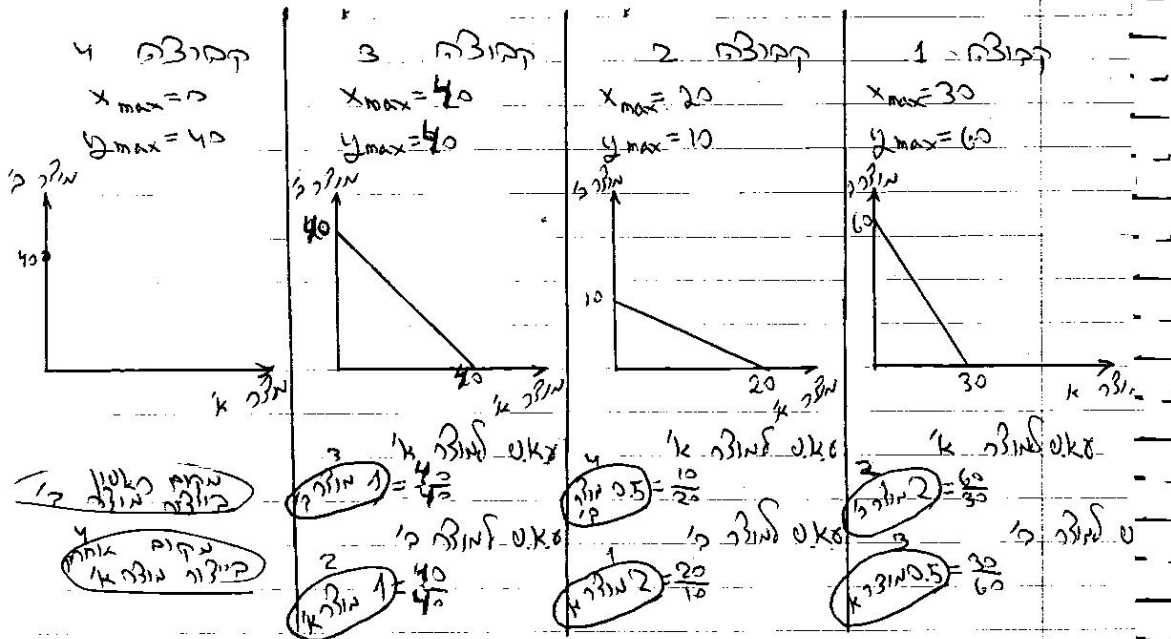 קבוצה 1
x max = 30
y max = 60
מוצר ב'
60
30
מוצר א
עאש למוצר א'
2 מוצר ב' = 60/30
2
למוצר ב'
0.5 מוצר א = 30/60
3
קבוצה 2
x max = 20
y max = 10
מוצר ב'
10
20
מוצר א'
עאש למוצר א'
0.5 מוצר ב' = 10/20
4
עאש למוצר ב'
2 מוצר א = 20/10
1
קבוצה 3
x max = 40
y max = 40
מוצר ב'
40
40
מוצר א'
עאש למוצר א'
1 מוצר ב' = 40/40
3
עאש למוצר ב'
1 מוצר א' = 40/40
2
קבוצה 4
x max = 0
y max = 40
מוצר ב'
40
מוצר א'
מקום ראשון
בייצור מוצר ב'
4
מקום אחרון
בייצור מוצר א'